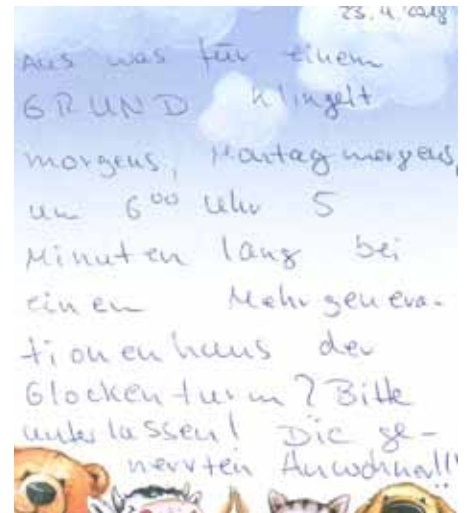 23.4.2018
Aus was für einem
GRUND klingelt
morgens, Montag morgens,
um 6⁰⁰ Uhr 5
Minuten lang bei
einem Mehrgenera-
tionenhaus der
Glockenturm? Bitte
unterlassen! Die ge-
nervten Anwohner!!